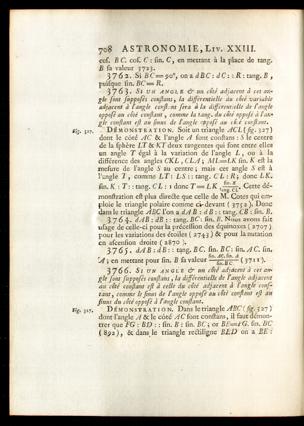 708 ASTRONOMIE, LIV. XXIII.
cos. BC. cos. C : sin. C, en mettant à la place de tang.
B sa valeur 3723.
3762. Si BC=90°, on a dBC : dC :: R : tang. B,
puisque sin. BC=R.
3763. SI UN ANGLE & un côté adjacent à cet an-
gle sont supposés constans, la différentielle du côté variable
adjacent à l'angle constant sera à la différentielle de l'angle
opposé au côté constant, comme la tang. du côté opposé à l'an-
gle constant est au sinus de l'angle opposé au côté constant.
fig. 327. DÉMONSTRATION. Soit un triangle ACL (fig. 327)
dont le côté AC & l'angle A sont constans : S le centre
de la sphère LT & KT deux tangentes qui font entre elles
un angle T égal à la variation de l'angle L, ou à la
différence des angles CKL, CLA ; ML=LK sin. K est la
mesure de l'angle S au centre ; mais cet angle S est à
l'angle T, comme LT : LS :: tang. CL : R ; donc LK.
sin. K : T :: tang. CL : 1 donc T=LK sin. K / tang. CL. Cette dé-
monstration est plus directe que celle de M. Cotes qui em-
ploie le triangle polaire comme ci-devant (3752). Donc
dans le triangle ABC l'on a dAB : dB :: tang. CB : sin. B.
3764. dAB : dB :: tang. BC : sin. B. Nous avons fait
usage de celle-ci pour la précession des équinoxes (2707)
pour les variations des étoiles (2743) & pour la mutation
en ascension droite (2870).
3765. dAB : dB :: tang. BC. sin. BC : sin. AC. sin.
A ; en mettant pour sin. B sa valeur sin. AC. sin. A / sin. BC. (3711).
3766. SI UN ANGLE & un côté adjacent à cet an-
gle sont supposés constans, la différentielle du côté opposé à
l'angle constant est à celle du côté adjacent à l'angle cons-
tant, comme le sinus de l'angle opposé au côté constant est au
sinus du côté opposé à l'angle constant.
Fig. 327. DÉMONSTRATION. Dans le triangle ABC (fig. 327)
dont l'angle A & le côté AC sont constans, il faut démon-
trer que FG : BD :: sin. B : sin. BC ; or BE=FG. sin. BC
(892), & dans le triangle rectiligne BED on a BE :